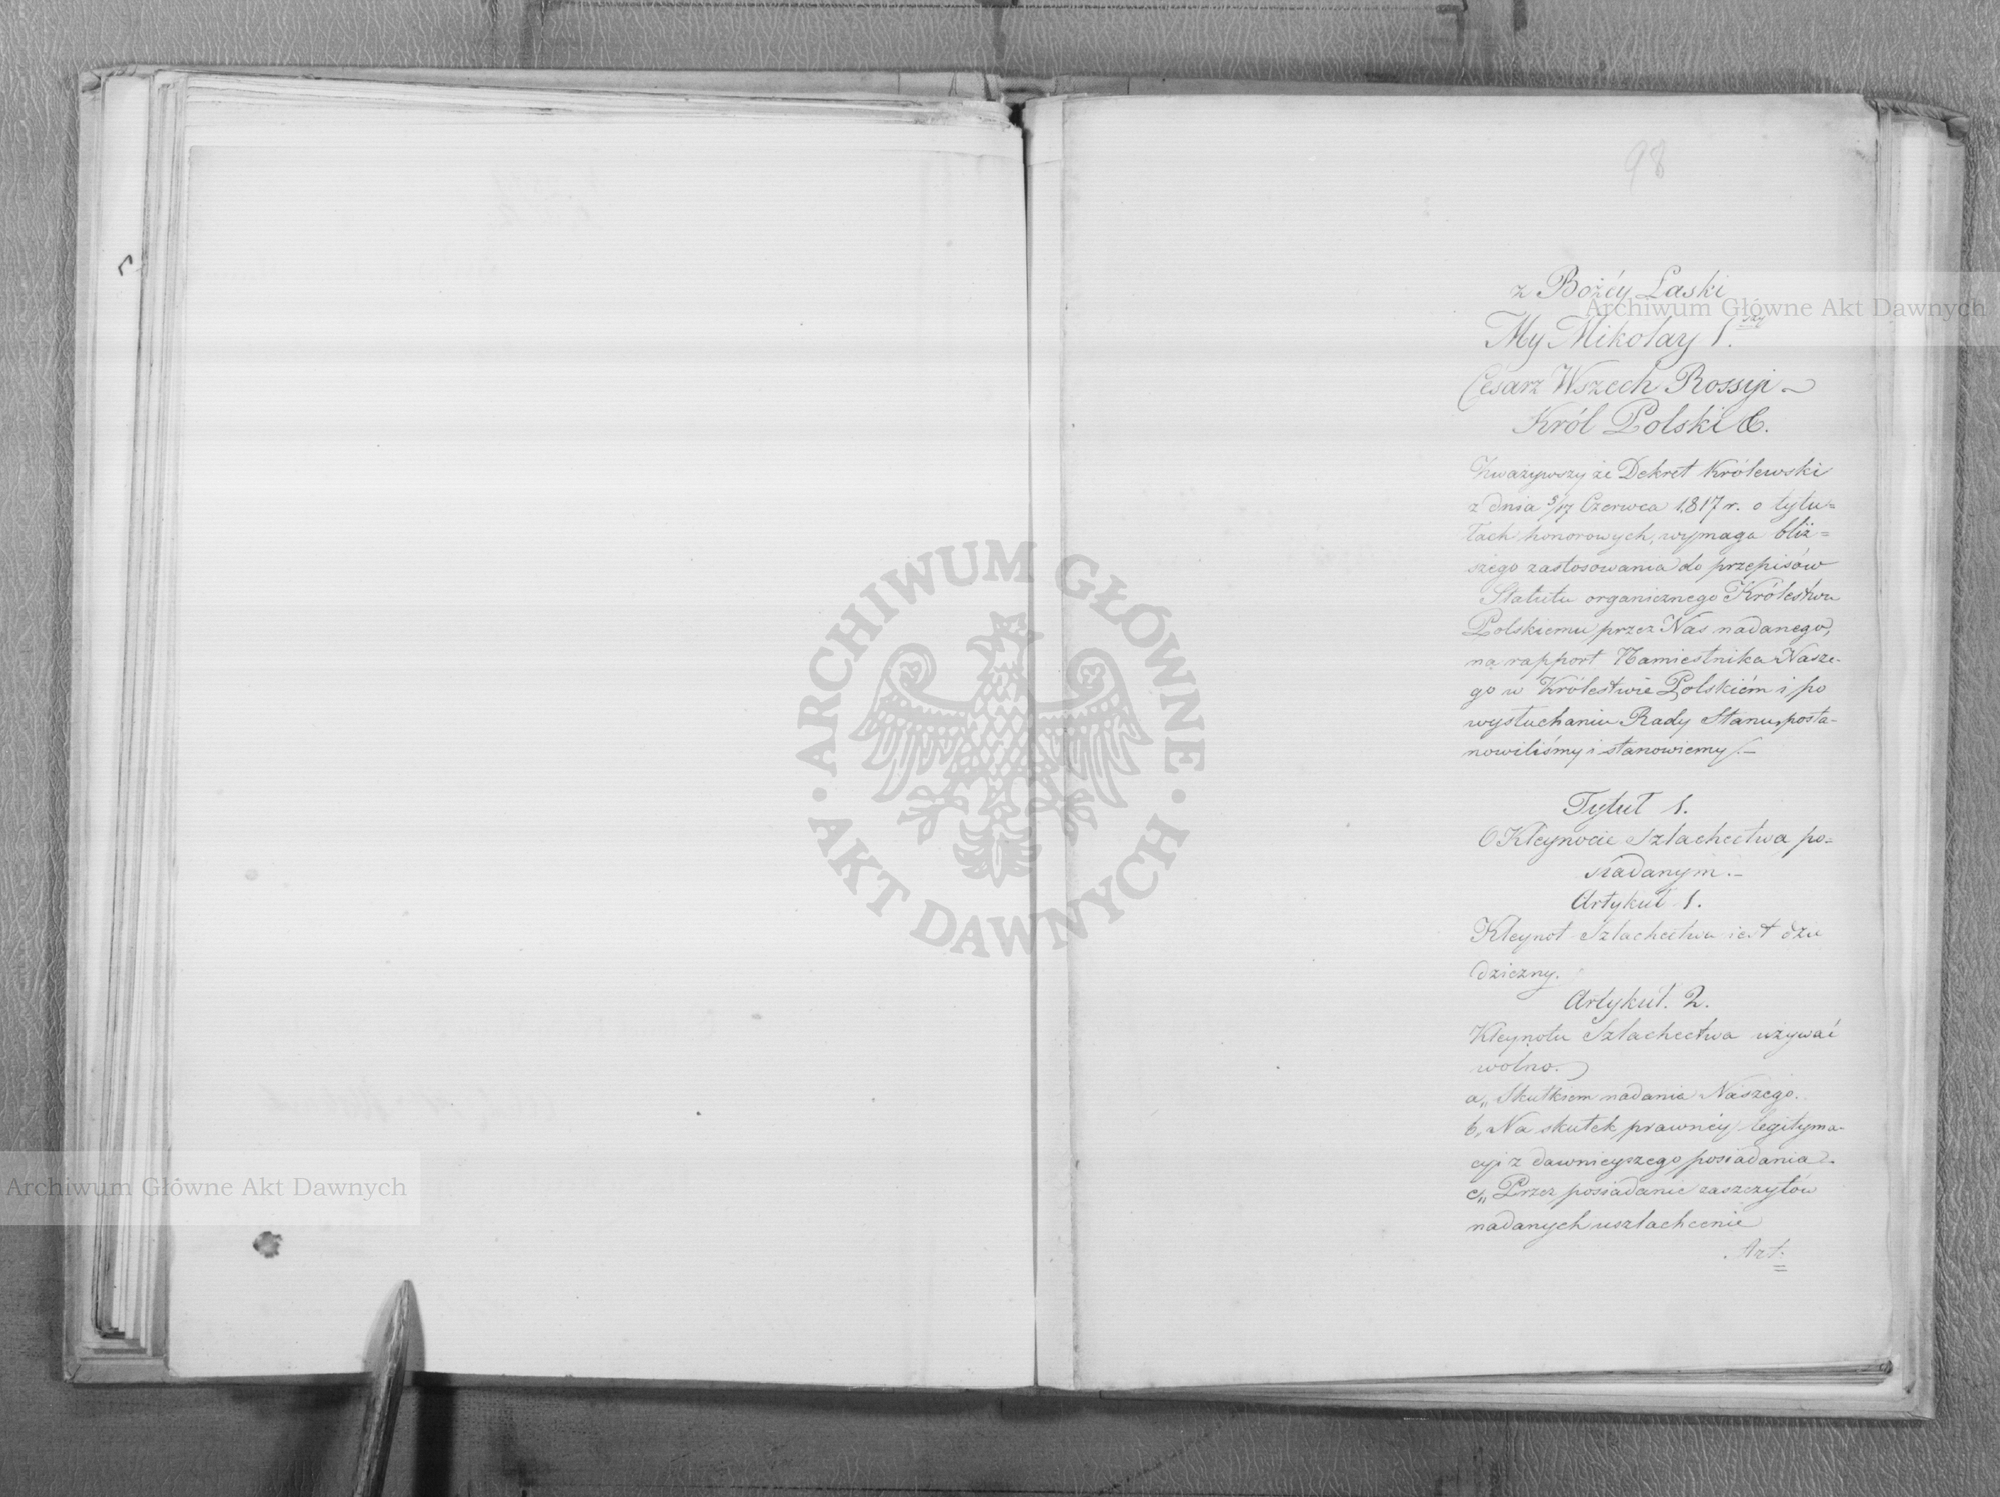 98
z Bożéy Łaski
My Mikołay I.szy
Cesarz Wszech Rossyi
Król Polski &.
Zważywszy że Dekret Królewski
z dnia 5/17 Czerwca 1817 r. o tytu=
łach honorowych, wymaga bliż=
szego zastosowania do przepisów
Statutu organicznego Królestwu
Polskiemu przez Nas nadanego,
na rapport Namiestnika Nasze-
go w Królestwie Polskiém i po
wysłuchaniu Rady Stanu, posta-
nowiliśmy i stanowiemy.–
Tytuł 1.
O Kleynocie Szlachectwa po=
siadanym.–
Artykuł 1.
Kleynot Szlachectwa iest dzie
dziczny.
Artykuł. 2.
Kleynotu Szlachectwa używać
wolno.
a„ Skutkiem nadania Naszego.
b„ Na skutek prawney legityma-
cyi z dawnieyszego posiadania
c„ Przez posiadanie zaszczytów
nadanych uszlachcenie
Art:
ARCHIWUM GŁÓWNE
· AKT DAWNYCH ·
Archiwum Główne Akt Dawnych
Archiwum Główne Akt Dawnych